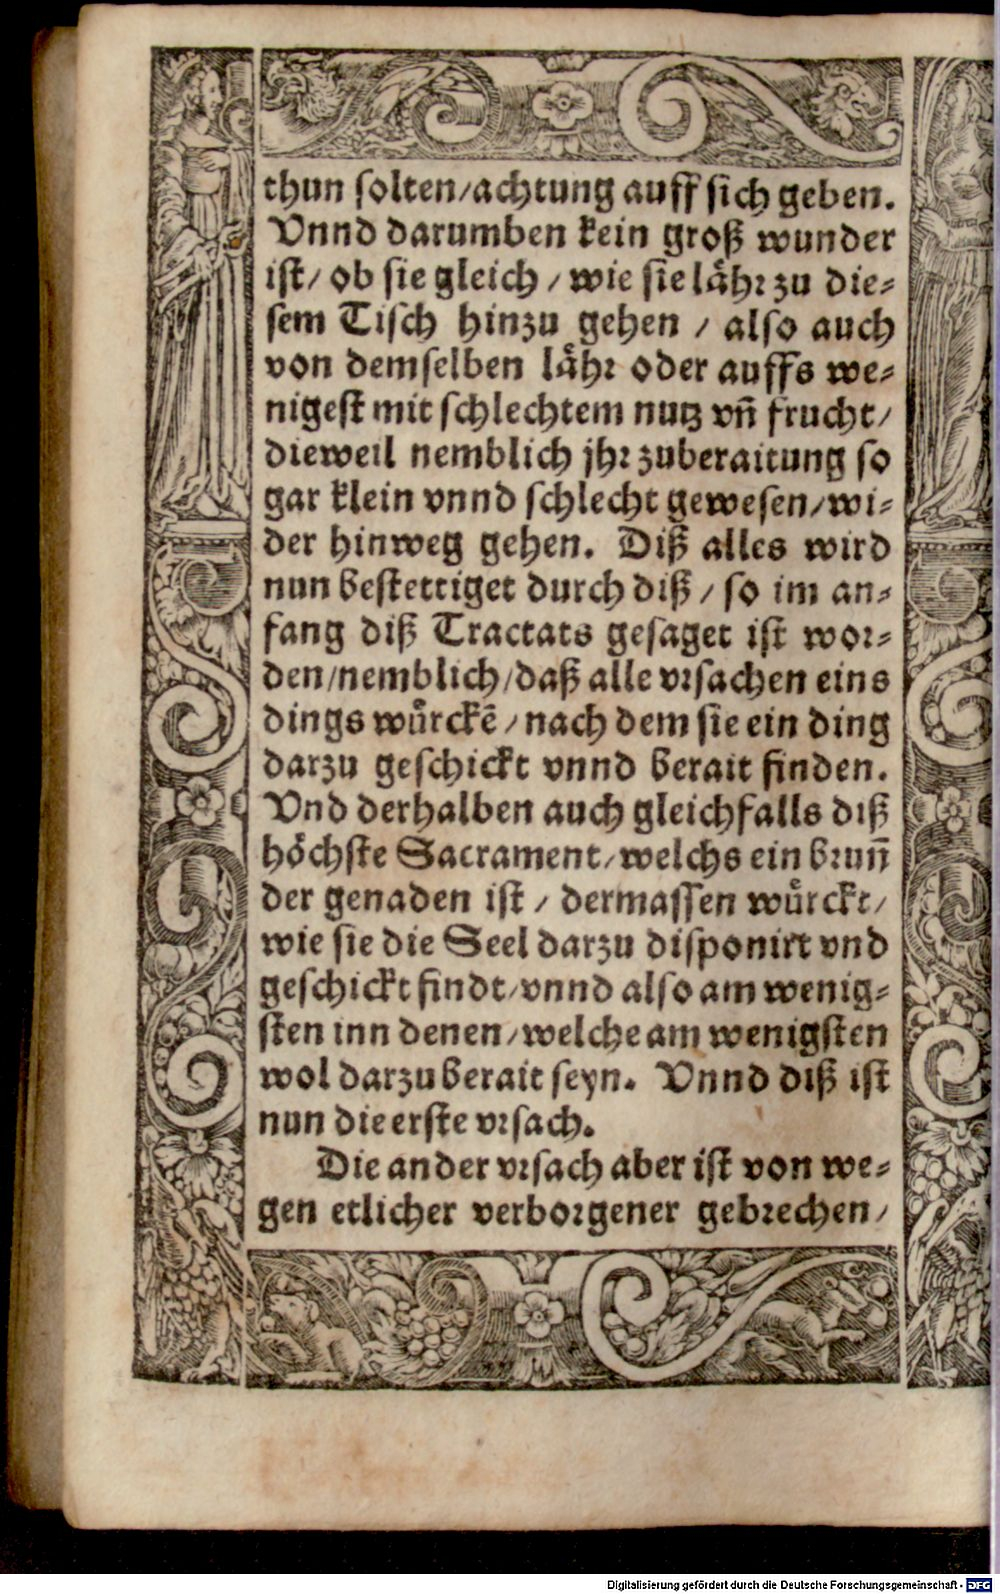 thun solten/achtung auff sich geben.
Vnnd darumben kein groß wunder
ist/ ob sie gleich / wie sie lähr zu die⸗
sem Tisch hinzu gehen / also auch
von demselben lähr oder auffs we⸗
nigest mit schlechtem nutz vñ frucht/
dieweil nemblich jhr zuberaitung so
gar klein vnnd schlecht gewesen/wi⸗
der hinweg gehen. Diß alles wird
nun bestettiget durch diß / so im an⸗
fang diß Tractats gesaget ist wor⸗
den/nemblich/daß alle vrsachen eins
dings wuͤrckẽ / nach dem sie ein ding
darzu geschickt vnnd berait finden.
Vnd derhalben auch gleichfalls diß
höchste Sacrament/welchs ein brunñ
der genaden ist / dermassen wuͤrckt/
wie sie die Seel darzu disponirt vnd
geschickt findt/vnnd also am wenig⸗
sten inn denen/welche am wenigsten
wol darzu berait seyn. Vnnd diß ist
nun die erste vrsach.
Die ander vrsach aber ist von we⸗
gen etlicher verborgener gebrechen/
Digitalisierung gefördert durch die Deutsche Forschungsgemeinschaft - DFG